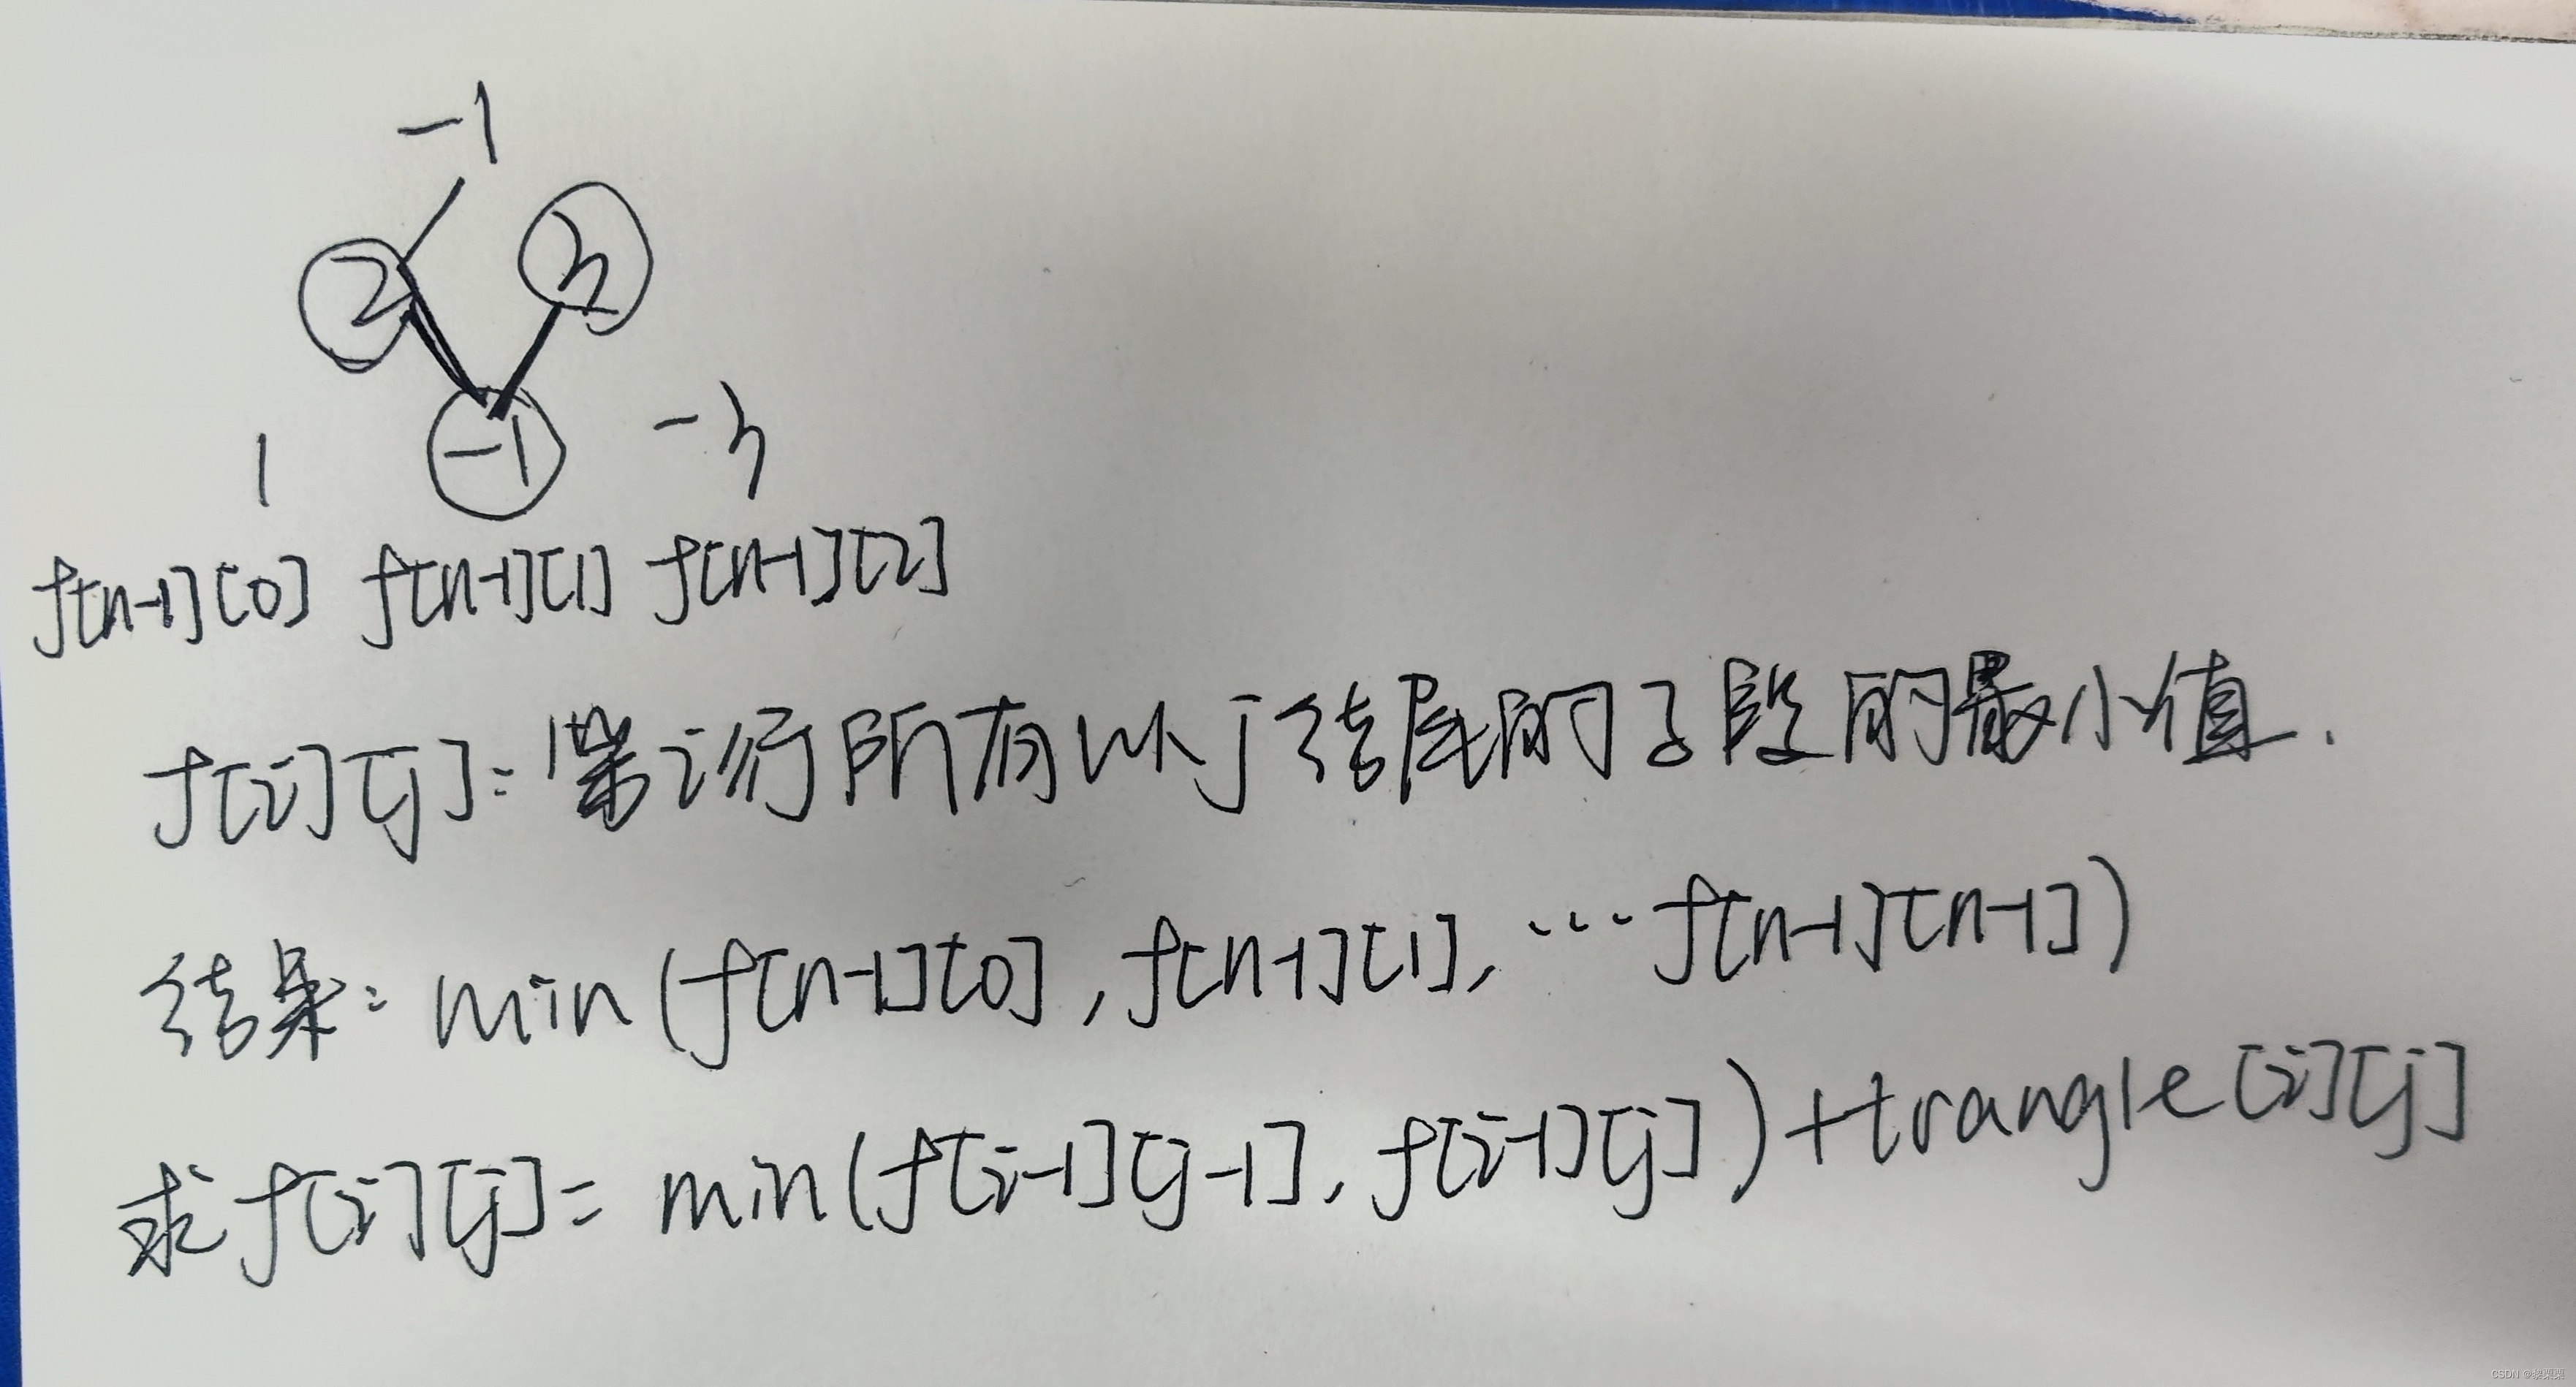 -1
2 3
1 -1 -3
f[n-1][0] f[n-1][1] f[n-1][2]
f[i][j]=第i行所有以j结尾的子段的最小值.
结果: min(f[n-1][0],f[n-1][1],…f[n-1][n-1])
求f[i][j]= min(f[i-1][j-1],f[i-1][j])+trangle[i][j]
CSDN